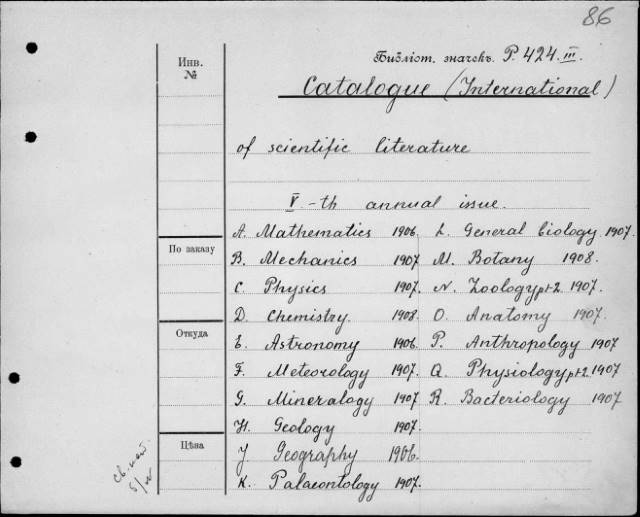 86
Инв.
№
Библіот. значекъ P. 424. III.
Catalogue (International)
of scientific literature
V-th annual issue.
A. Mathematics 1906.
B. Mechanics 1907
C. Physics 1907.
По заказу
D. Chemistry. 1908.
E. Astronomy 1906.
F. Meteorology 1907.
Откуда
G. Mineralogy 1907
H. Geology 1907.
J Geography 1906.
K. Palaeontology 1907.
Цѣна
L. General biology 1907.
M. Botany 1908.
N. Zoology pt 2. 1907.
O. Anatomy 1907.
P. Anthropology 1907
Q. Physiology pt 2. 1907
R. Bacteriology 1907